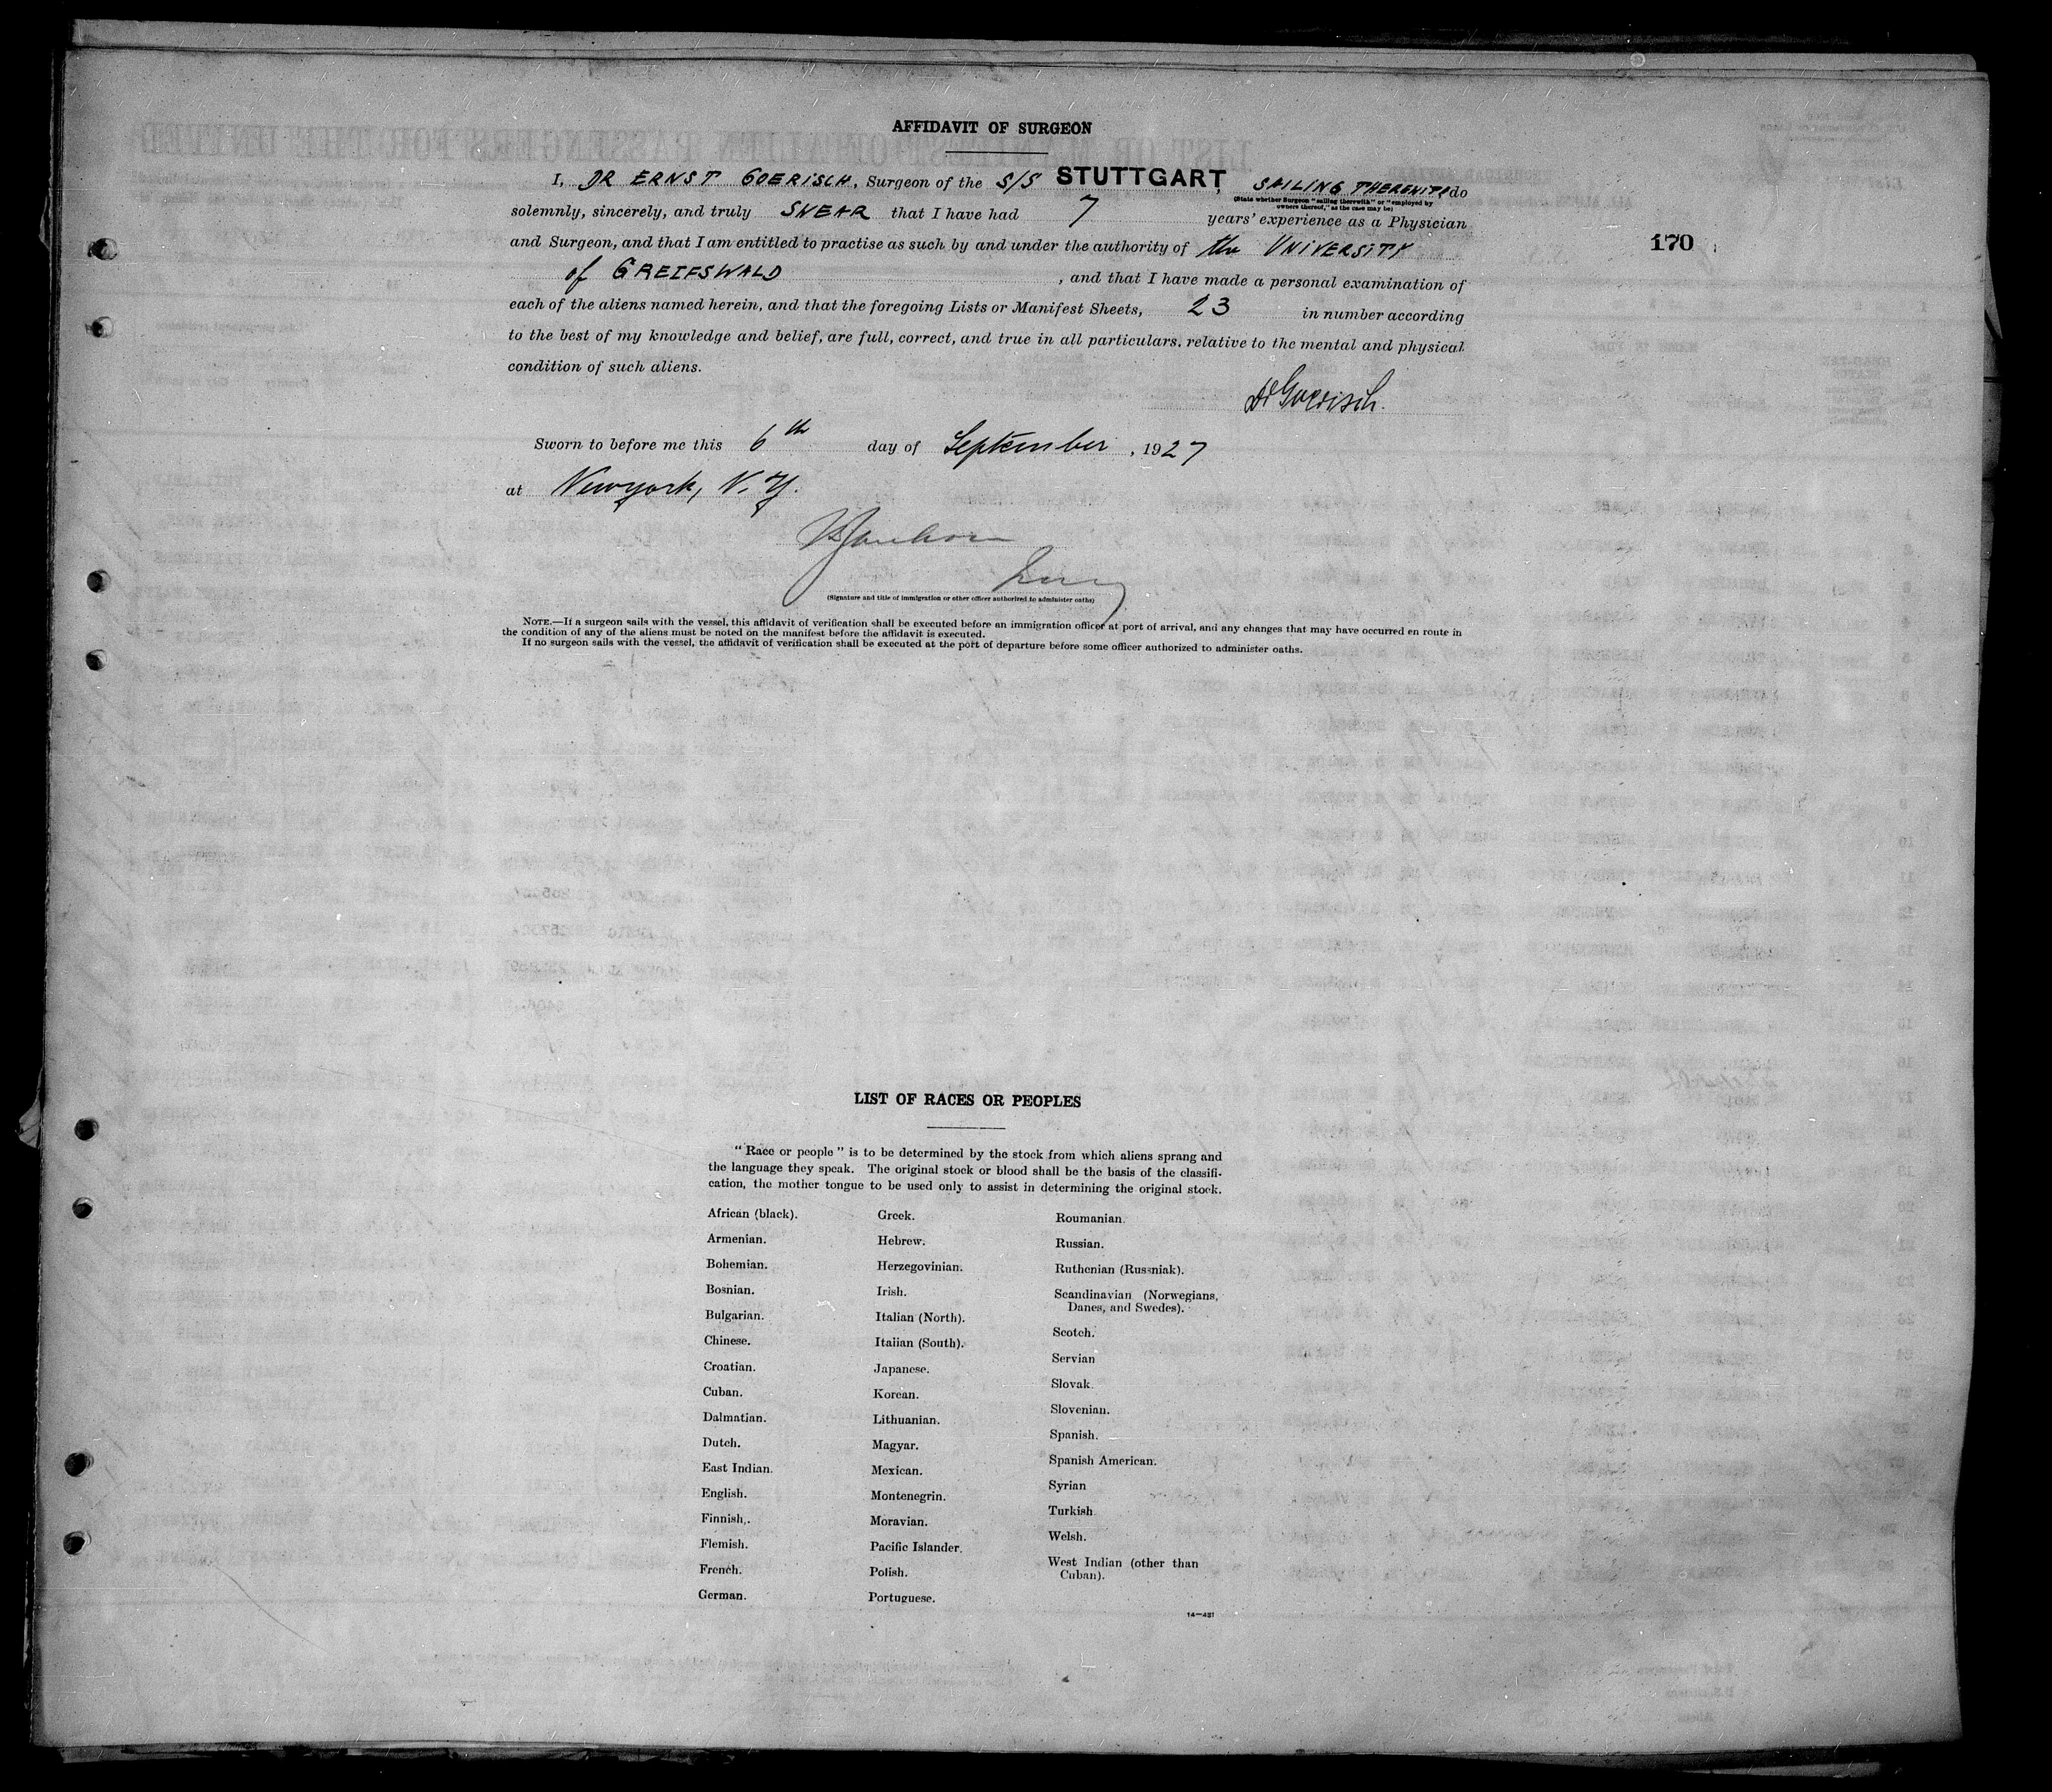 AFFIDAVIT OF SURGEON
I, DR ERNST GOERISCH, Surgeon of the S/S STUTTGART, SAILING THEREWITH do
(State whether Surgeon "sailing therewith" or "employed by
owners thereof," as the case may be)
solemnly, sincerely, and truly SWEAR that I have had 7 years' experience as a Physician
and Surgeon, and that I am entitled to practise as such by and under the authority of the UNIVERSITY
170
of GREIFSWALD, and that I have made a personal examination of
each of the aliens named herein, and that the foregoing Lists or Manifest Sheets, 23 in number according
to the best of my knowledge and belief, are full, correct, and true in all particulars, relative to the mental and physical
condition of such aliens.
Dr Goerisch.
Sworn to before me this 6th day of September, 1927
at Newyork, N.Y.
(Signature and title of immigration or other officer authorized to administer oaths)
NOTE.—If a surgeon sails with the vessel, this affidavit of verification shall be executed before an immigration officer at port of arrival, and any changes that may have occurred en route in
the condition of any of the aliens must be noted on the manifest before the affidavit is executed.
If no surgeon sails with the vessel, the affidavit of verification shall be executed at the port of departure before some officer authorized to administer oaths.
LIST OF RACES OR PEOPLES
"Race or people" is to be determined by the stock from which aliens sprang and
the language they speak. The original stock or blood shall be the basis of the classifi-
cation, the mother tongue to be used only to assist in determining the original stock.
African (black).
Armenian.
Bohemian.
Bosnian.
Bulgarian.
Chinese.
Croatian.
Cuban.
Dalmatian.
Dutch.
East Indian.
English.
Finnish.
Flemish.
French.
German.
Greek.
Hebrew.
Herzegovinian.
Irish.
Italian (North).
Italian (South).
Japanese.
Korean.
Lithuanian.
Magyar.
Mexican.
Montenegrin.
Moravian.
Pacific Islander.
Polish.
Portuguese.
Roumanian.
Russian.
Ruthenian (Russniak).
Scandinavian (Norwegians,
Danes, and Swedes).
Scotch.
Servian
Slovak.
Slovenian.
Spanish.
Spanish American.
Syrian
Turkish
Welsh.
West Indian (other than
Cuban).
14—431